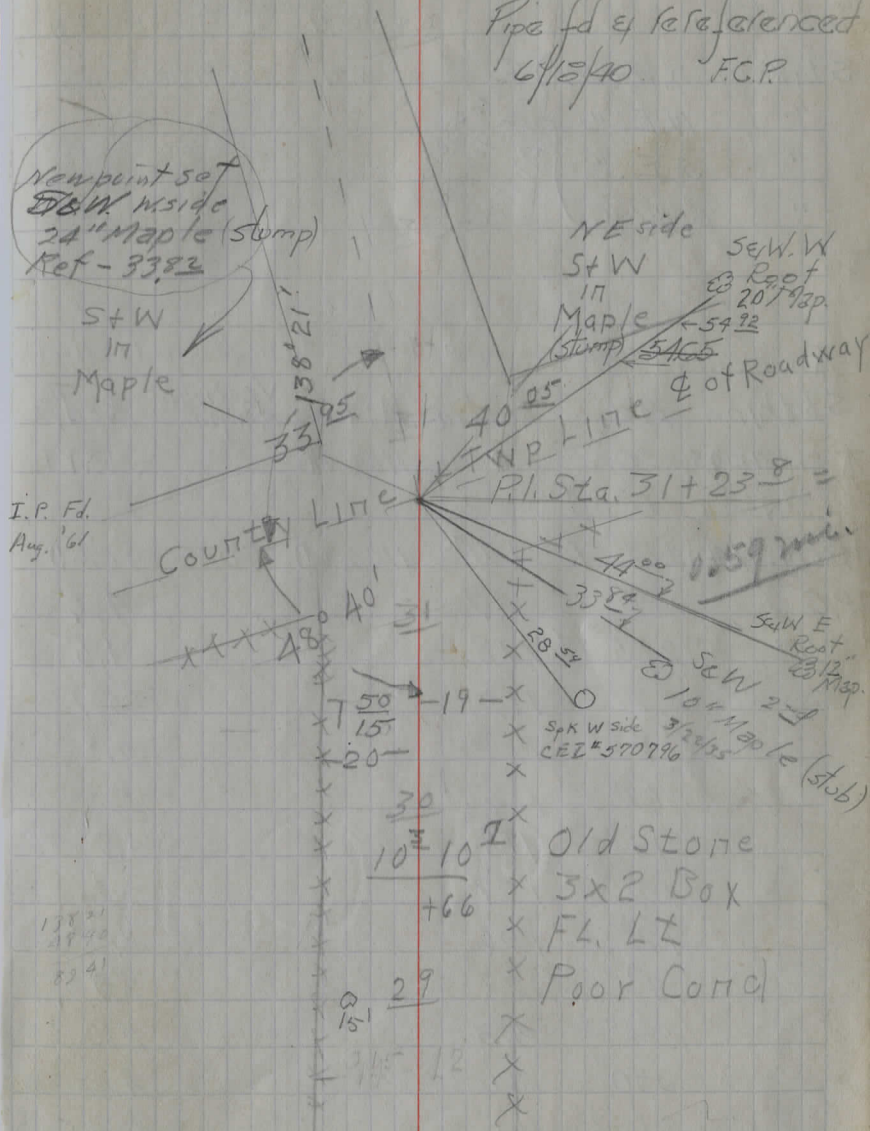 Pipe fd & rereferenced
6/18/40 F.C.P.
New point set
S&W. W.side
24" Maple (stump)
Ref - 33.82
StW
in
Maple
138°21'
33 95
NE side
StW
in
Maple
(stump)
S&W. W
Root
20" Map.
54 92
5465
℄ of Roadway
40 05
Twp Line
P.I. Sta. 31+23 8 =
0.59 mi.
I.P. Fd.
Aug. '61
County Line
44 00
33 84
28 54
S&W E
Root
12"
Map.
S&W
10" Maple (stub)
3/22/35
Spk W side
CEI #570796
40'
48
31
50
15
-19-
-20-
30
10 10
+66
Old Stone
3x2 Box
FL. Lt
Poor Cond
29
15'